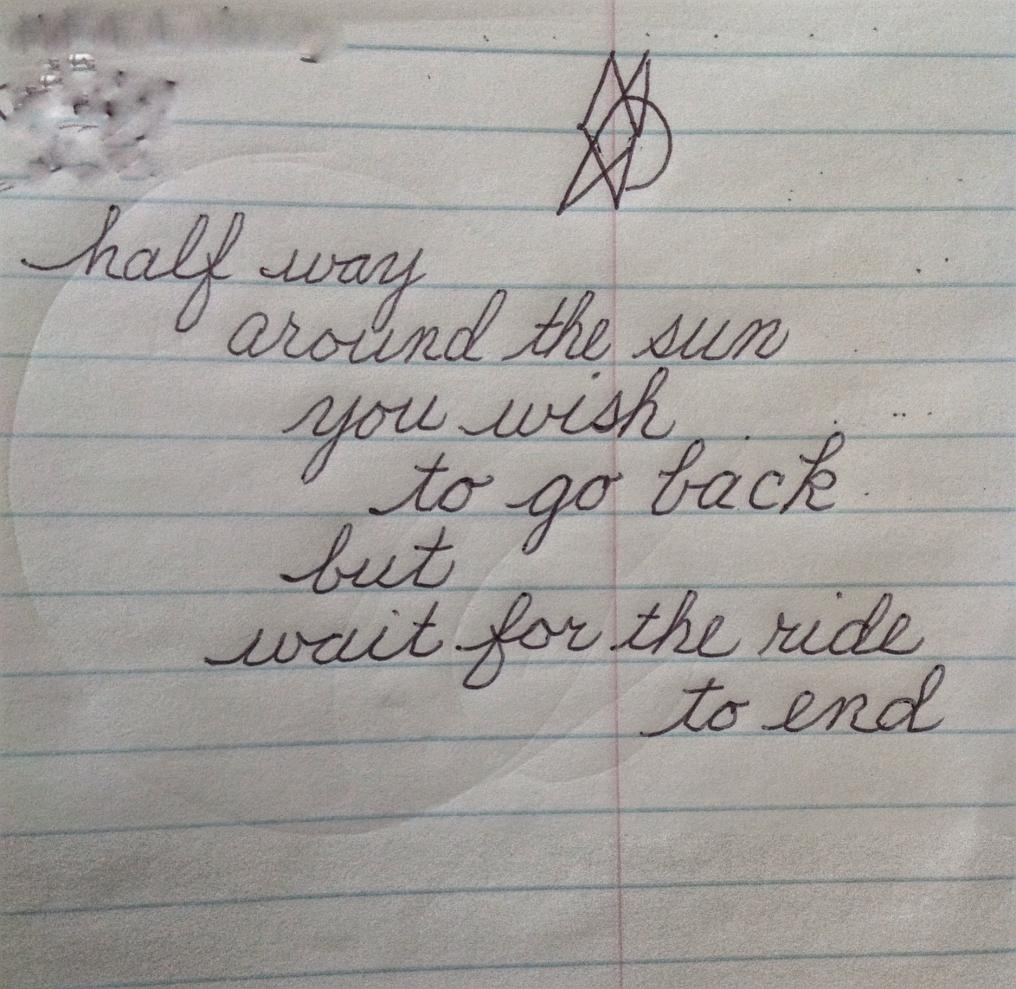 half way
around the sun
you wish
to go back
but
wait for the ride
to end